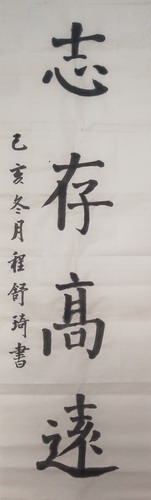 志存高遠
己亥冬月程舒琦書